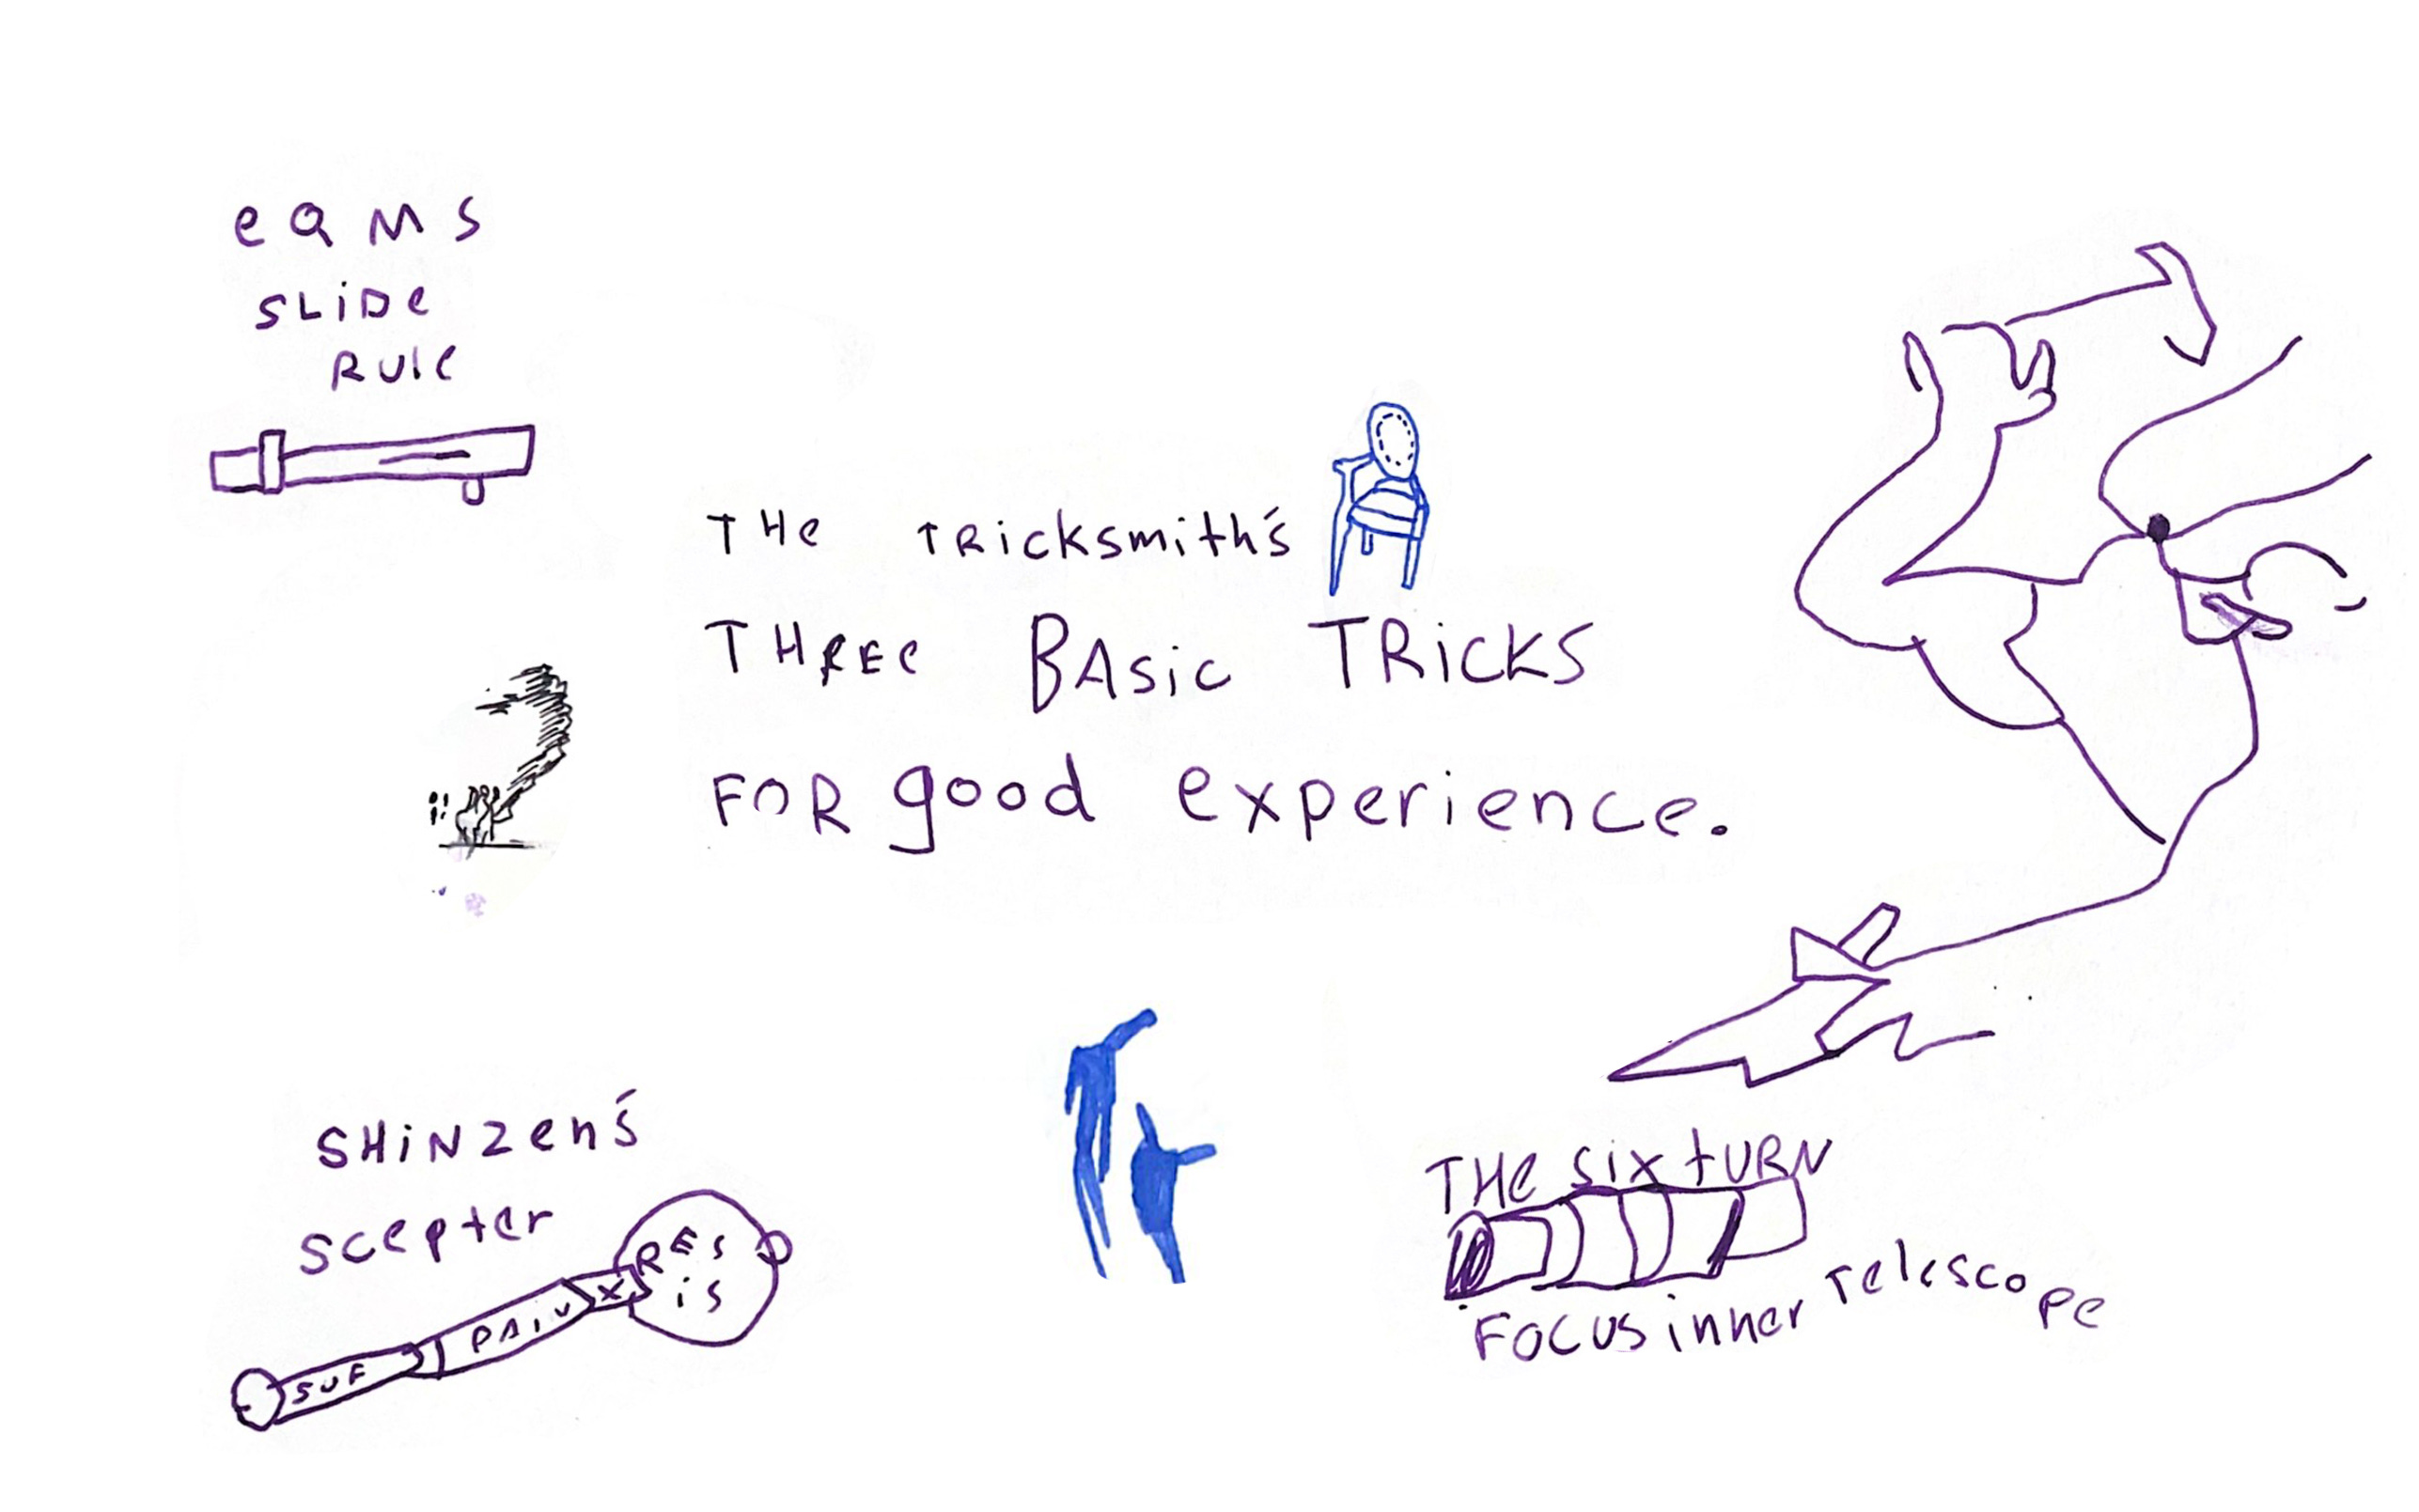 eQMS
SLiDe
RULe
THe TRicksmith's
THREe BAsic TRicKS
FOR good experience.
SHiNZen's
scepter
SUF PAiN X RES
is
THe six tURN
FOCUS inner Telescope